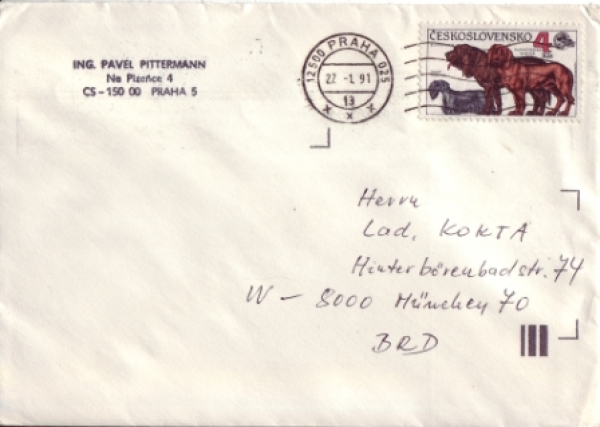 ING. PAVEL PITTERMANN
Na Plzeňce 4
CS-150 00 PRAHA 5
12500 PRAHA 025
22 -1. 91
13
x x x
ČESKOSLOVENSKO 4
Herrn
Lad. KOKTA
Hinterbärenbadstr. 74
W - 8000 München 70
BRD